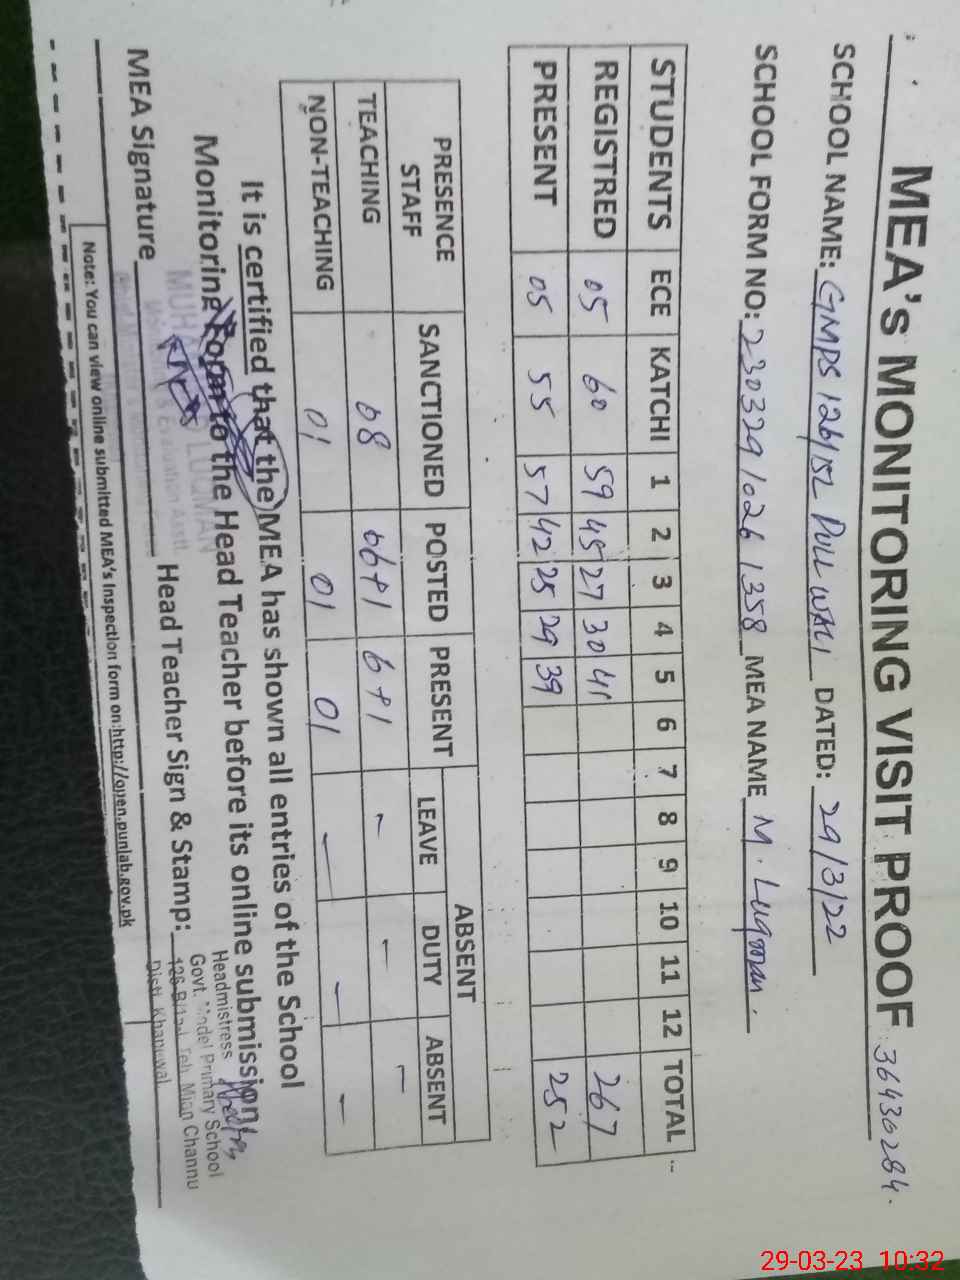 MEA's MONITORING VISIT PROOF 36430284.
SCHOOL NAME: GMPS 126/15L PULL WALI DATED: 29/3/22
SCHOOL FORM NO: 230329 1026 1358 MEA NAME M. Luqman.
STUDENTS ECE KATCHI 1 2 3 4 5 6 7 8 9 10 11 12 TOTAL
REGISTRED 05 60 59 45 27 30 41 267
PRESENT 05 55 57 42 25 29 39 252
PRESENCE STAFF SANCTIONED POSTED PRESENT ABSENT
LEAVE DUTY ABSENT
TEACHING 08 06+1 6+1 - - -
NON-TEACHING 01 01 01 - - -
It is certified that the MEA has shown all entries of the School
Monitoring Form to the Head Teacher before its online submission
MEA Signature Head Teacher Sign & Stamp:
LUQMAN
Evaluation Asstt.
Headmistress
Govt. Model Primary School
Teh. Mian Channu
Distt. Khanewal
Note: You can view online submitted MEA's Inspection form on:http://open.punlab.gov.pk
29-03-23 10:32